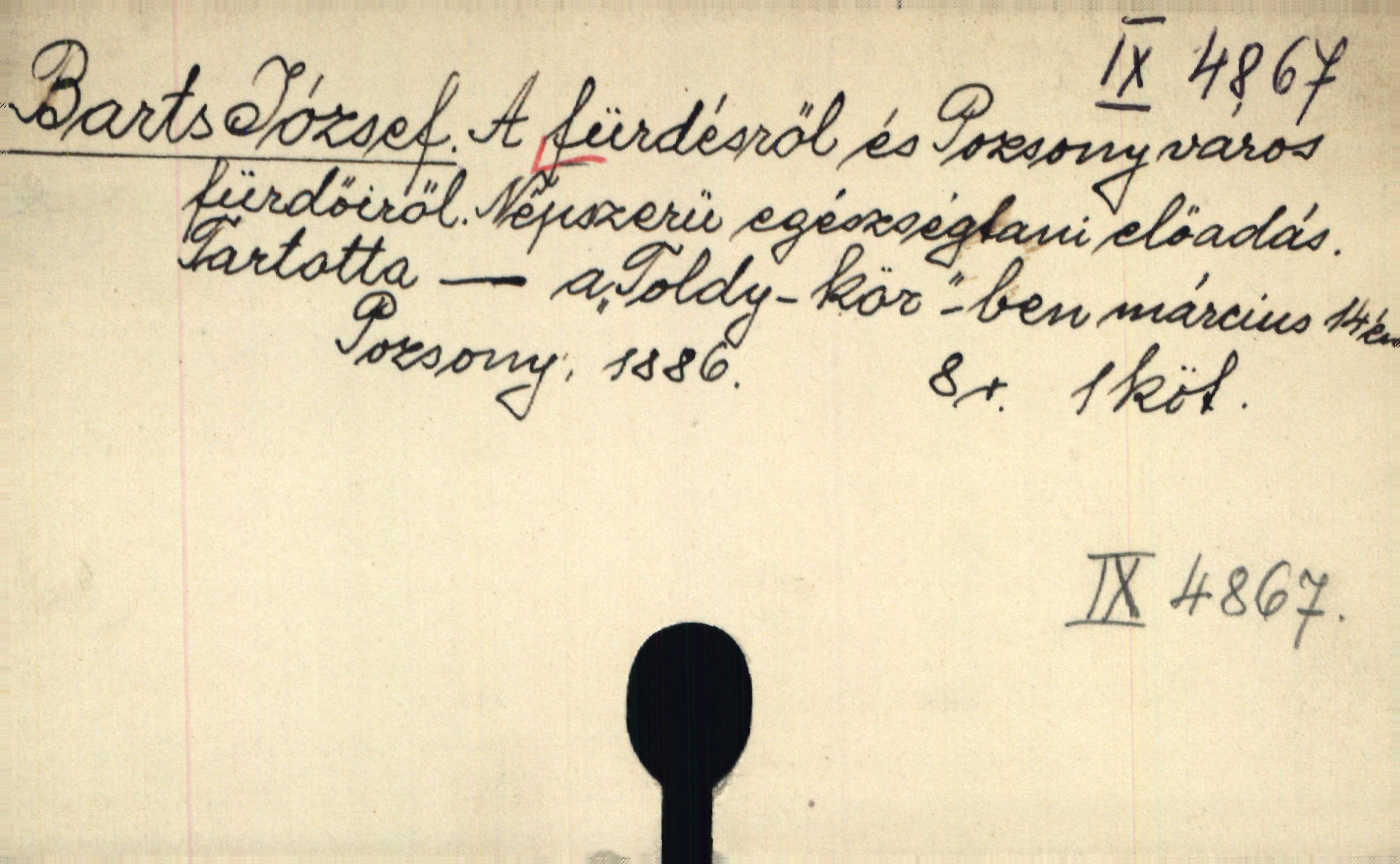 IX 4867
Barts József. A fürdésről és Pozsony város
fürdőiről. Népszerü egészségtani előadás.
Tartotta — a „Toldy-kör"-ben március 14én
Pozsony, 1886. 8r. 1 köt.
IX 4867.